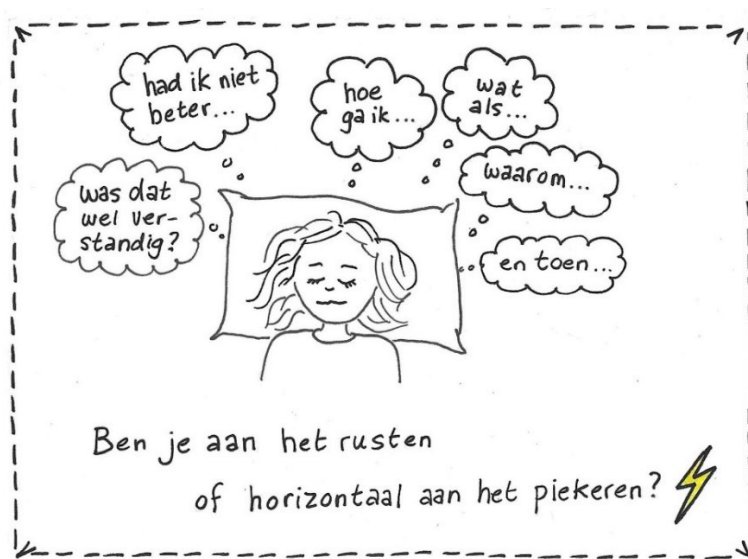 had ik niet
beter...
hoe
ga ik...
wat
als...
waarom...
was dat
wel ver-
standig?
en toen...
Ben je aan het rusten
of horizontaal aan het piekeren?